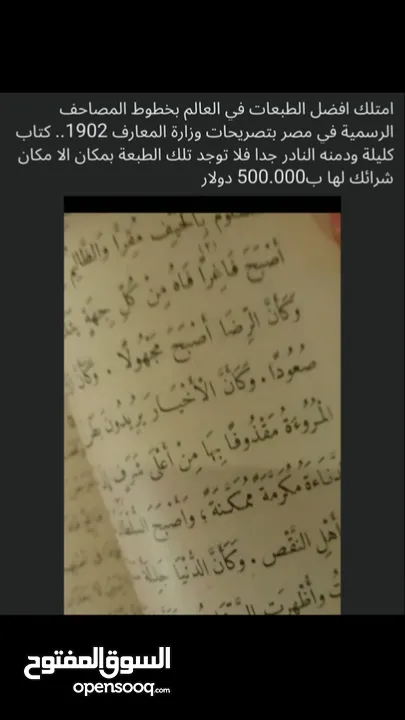 امتلك افضل الطبعات في العالم بخطوط المصاحف
الرسمية في مصر بتصريحات وزارة المعارف 1902.. كتاب
كليلة ودمنه النادر جدا فلا توجد تلك الطبعة بمكان الا مكان
شرائك لها ب500.000 دولار
بِالْحَيْفِ مُقِرًّا وَالظَّالِمُ
أَصْبَحَ فَاغِرًا فَاهُ مِنْ كُلِّ جِهَةٍ
وَكَأَنَّ الرِّضَا أَصْبَحَ مَجْهُولًا . وَكَأَنَّ
صُعُودًا . وَكَأَنَّ الْأَخْيَارَ يُرِيدُونَ
الْمُرُوءَةُ مَقْذُوفًا بِهَا مِنْ أَعْلَى شَرَفٍ
مُكَرَّمَةً مُمَكَّنَةً ؛ وَأَصْبَحَ السُّلْطَانُ
أَهْلِ النَّقْصِ . وَكَأَنَّ الدُّنْيَا جَذِلَةٌ
وَأَظْهَرَتِ
السوق المفتوح
opensooq.com